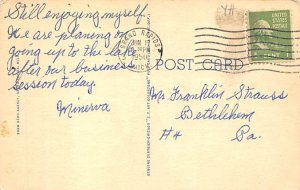 Still enjoying myself.
We are planning on
going up to the lake
after our business
session today.
Minerva
GRAND RAPIDS
JUN 17
1950
MICH.
UNITED STATES
POST CARD
Mrs Franklin Strauss
Bethlehem
R#4 Pa.